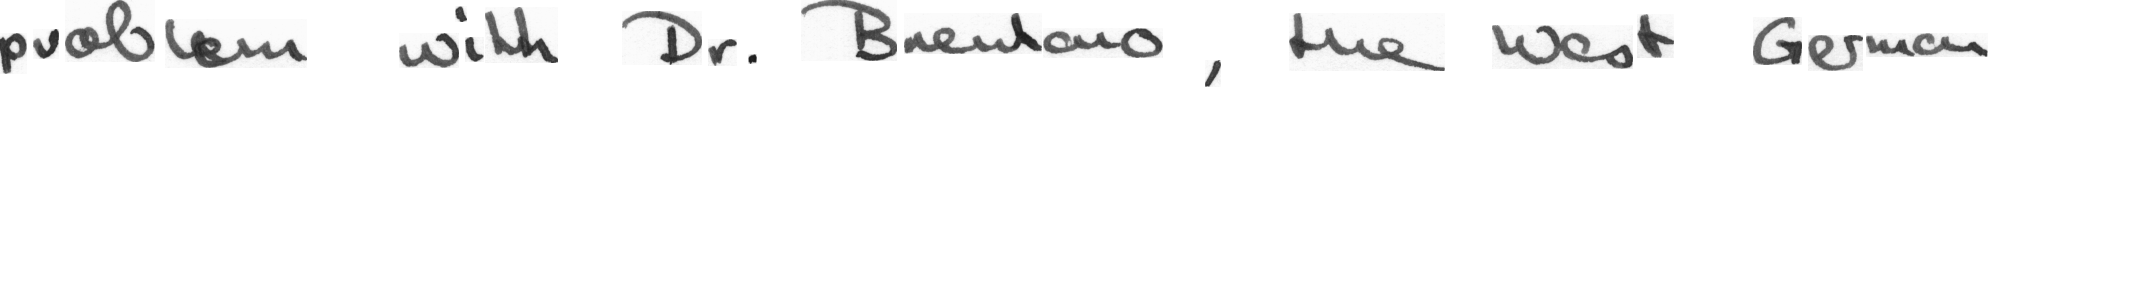 problem with Dr. Brentano, the West German